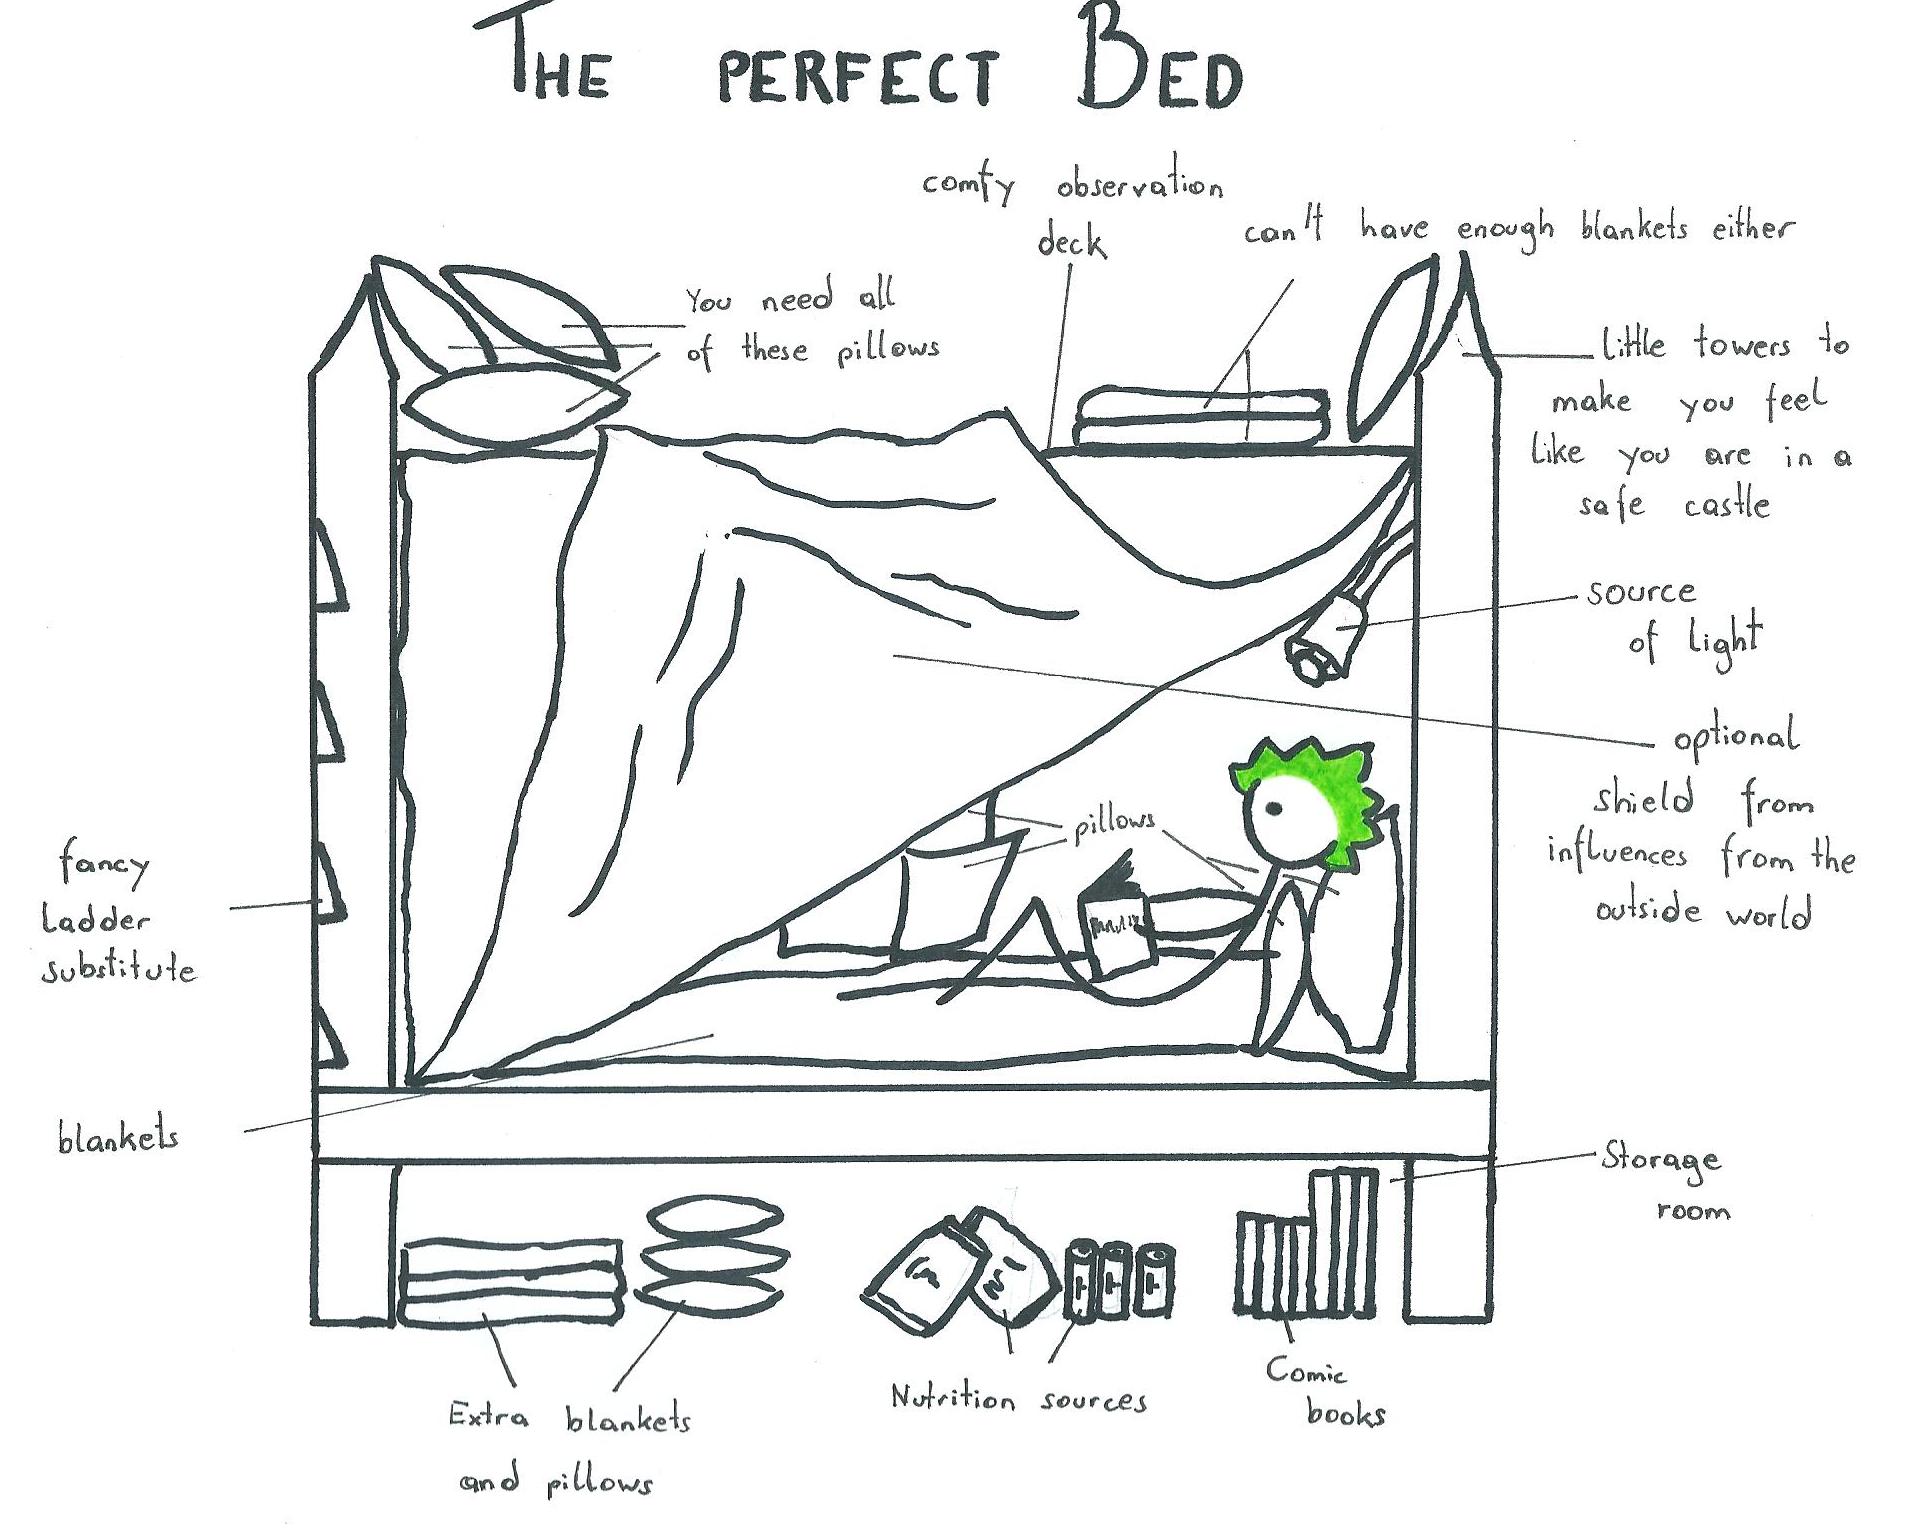 THE PERFECT BED
comfy observation
deck
can't have enough blankets either
You need all
of these pillows
little towers to
make you feel
like you are in a
safe castle
source
of light
optional
shield from
influences from the
outside world
pillows
fancy
ladder
substitute
blankets
Storage
room
Extra blankets
and pillows
Nutrition sources
Comic
books